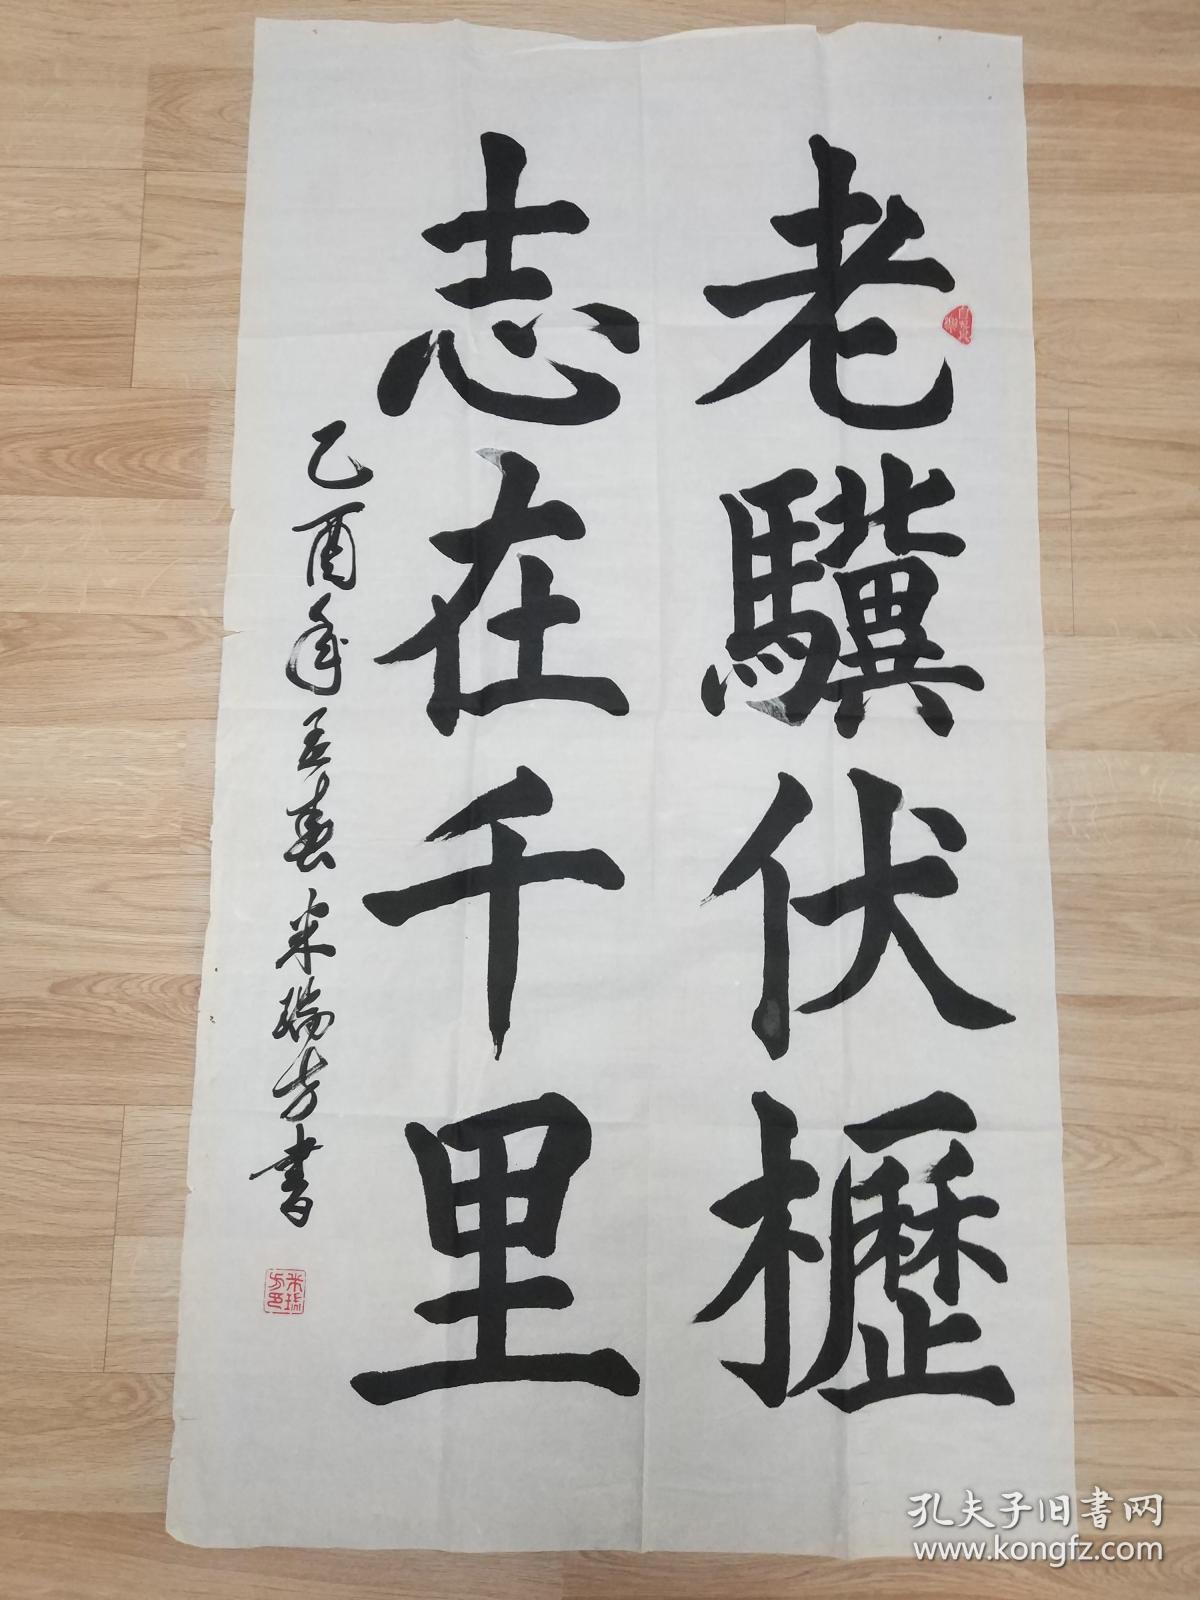 老驥伏櫪
志在千里
乙酉年孟春米瑞芳書
孔夫子旧書网
www.kongfz.com